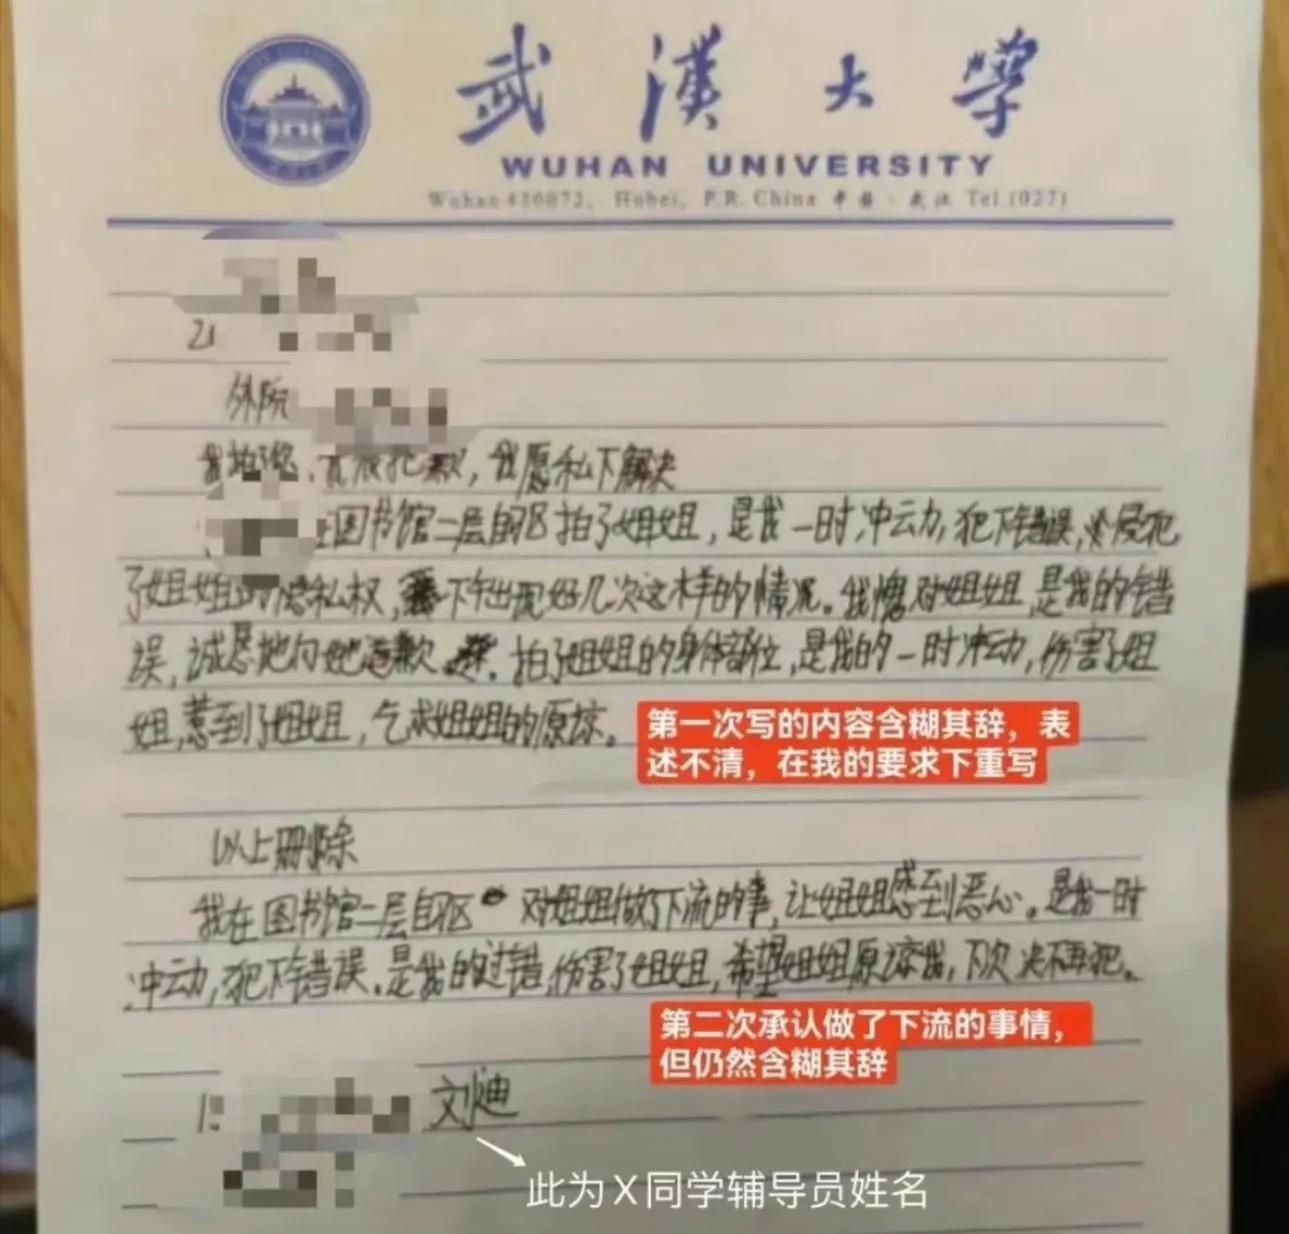 武漢大學
WUHAN UNIVERSITY
Wuhan 430072, Hubei, P.R. China 中国·武汉 Tel.(027)
外院
我愿私下解决
图书馆二层自习区拍了姐姐，是我一时冲动，犯下错误，侵犯
了姐姐的隐私权，下午出现好几次这样的情况。我愧对姐姐，是我的错
误，诚恳地向她道歉。拍了姐姐的身体部位，是我的一时冲动，伤害了姐
姐，惹到了姐姐，乞求姐姐的原谅。
第一次写的内容含糊其辞，表
述不清，在我的要求下重写
以上删除
我在图书馆二层自习区对姐姐做了下流的事，让姐姐感到恶心。是我一时
冲动，犯下错误。是我的过错，伤害了姐姐，希望姐姐原谅我，下次决不再犯。
第二次承认做了下流的事情，
但仍然含糊其辞
刘迪
此为X同学辅导员姓名